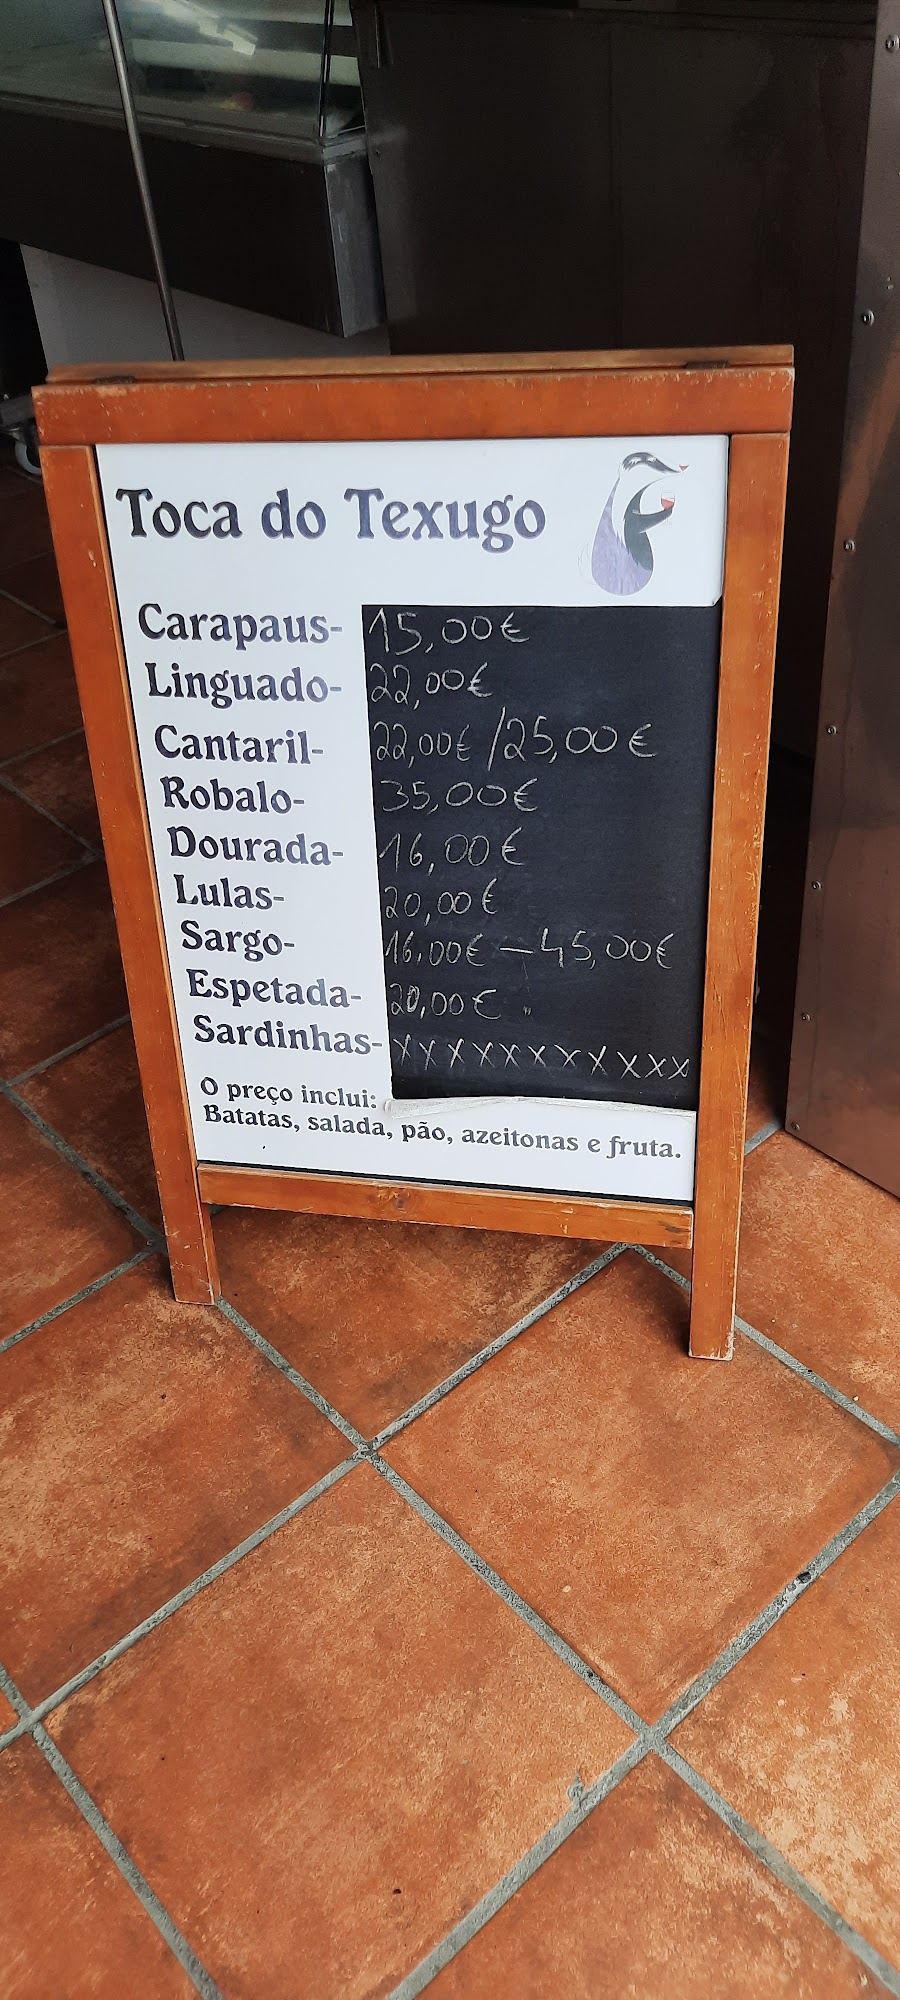 Toca do Texugo
Carapaus- 15,00€
Linguado- 22,00€
Cantaril- 22,00€ /25,00€
Robalo- 35,00€
Dourada- 16,00€
Lulas- 20,00€
Sargo- 16,00€ - 45,00€
Espetada- 20,00€
Sardinhas- XXXXXXXXXXX
O preço inclui:
Batatas, salada, pão, azeitonas e fruta.